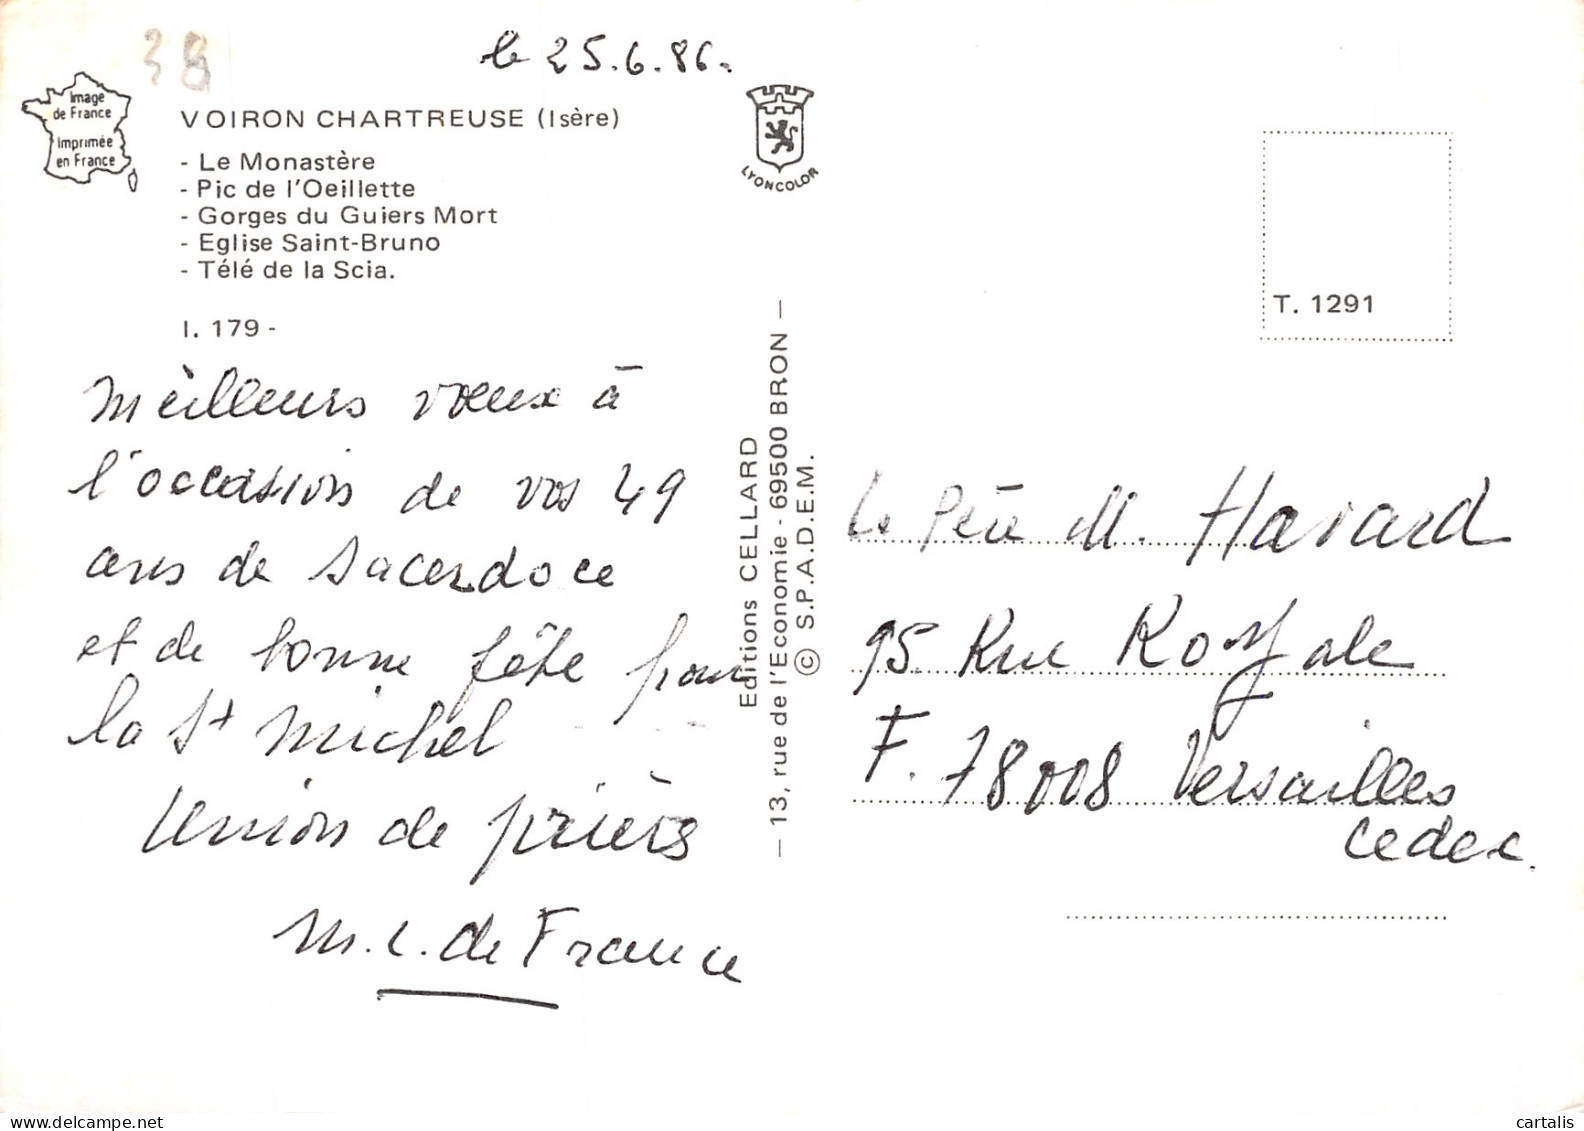 38
le 25.6.86.
Image
de France
Imprimée
en France
VOIRON CHARTREUSE (Isère)
- Le Monastère
- Pic de l'Oeillette
- Gorges du Guiers Mort
- Eglise Saint-Bruno
- Télé de la Scia.
I. 179 -
Meilleurs vœux à
l'occasion de vos 49
ans de Sacerdoce
et de bonne fête pour
la St Michel
Union de prières
M.L. de France
LYONCOLOR
Editions CELLARD
— 13, rue de l'Economie - 69500 BRON —
© S.P.A.D.E.M.
T. 1291
Le Père M. Havard
95 Rue Royale
F. 78008 Versailles
Cedex.
cartalis